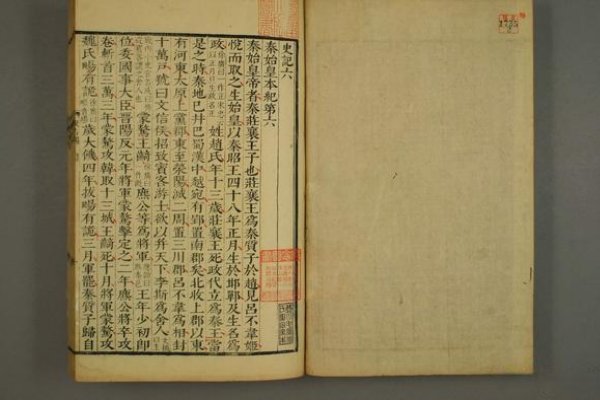 史記六
秦始皇本紀第六
秦始皇帝者秦莊襄王子也莊襄王爲秦質子於趙見呂不韋姬
悅而取之生始皇以秦昭王四十八年正月生於邯鄲及生名爲
政徐廣曰一作正宋忠云以正月旦生故名正姓趙氏年十三歲莊襄王死政代立爲秦王當
是之時秦地已并巴蜀漢中越宛有郢置南郡矣北收上郡以東
有河東太原上黨郡東至滎陽滅二周置三川郡呂不韋爲相封
十萬戶號曰文信侯招致賓客游士欲以并天下李斯爲舍人
蒙驁王齮麃公等爲將軍王年少初即
位委國事大臣晉陽反元年將軍蒙驁擊定之二年麃公將卒攻
卷斬首三萬三年蒙驁攻韓取十三城王齮死十月將軍蒙驁攻
魏氏暢有詭歲大饑四年拔暢有詭三月軍罷秦質子歸自